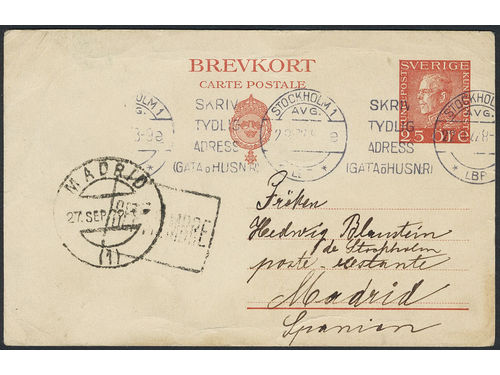 BREVKORT
CARTE POSTALE
SVERIGE
25 ÖRE
STOCKHOLM 1
AVG.
LBF
SKRIV
TYDLIG
ADRESS
(GATA o HUSNR)
SKRIV
TYDLIG
ADRESS
(GATA o HUSNR)
STOCKHOLM 1
AVG.
LBF
MADRID
27 SEP
(1)
Fröken
Hedwig Blaustein
de Stockholm
poste restante
Madrid
Spanien